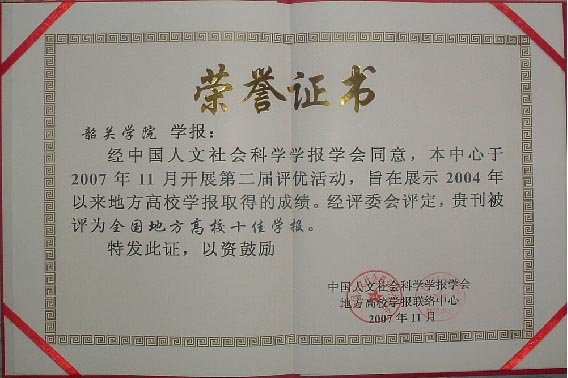 荣誉证书
韶关学院 学报：
经中国人文社会科学学报学会同意，本中心于
2007 年 11 月开展第二届评优活动，旨在展示 2004 年
以来地方高校学报取得的成绩。经评委会评定，贵刊被
评为全国地方高校十佳学报。
特发此证，以资鼓励
中国人文社会科学学报学会
地方高校学报联络中心
2007 年 11 月